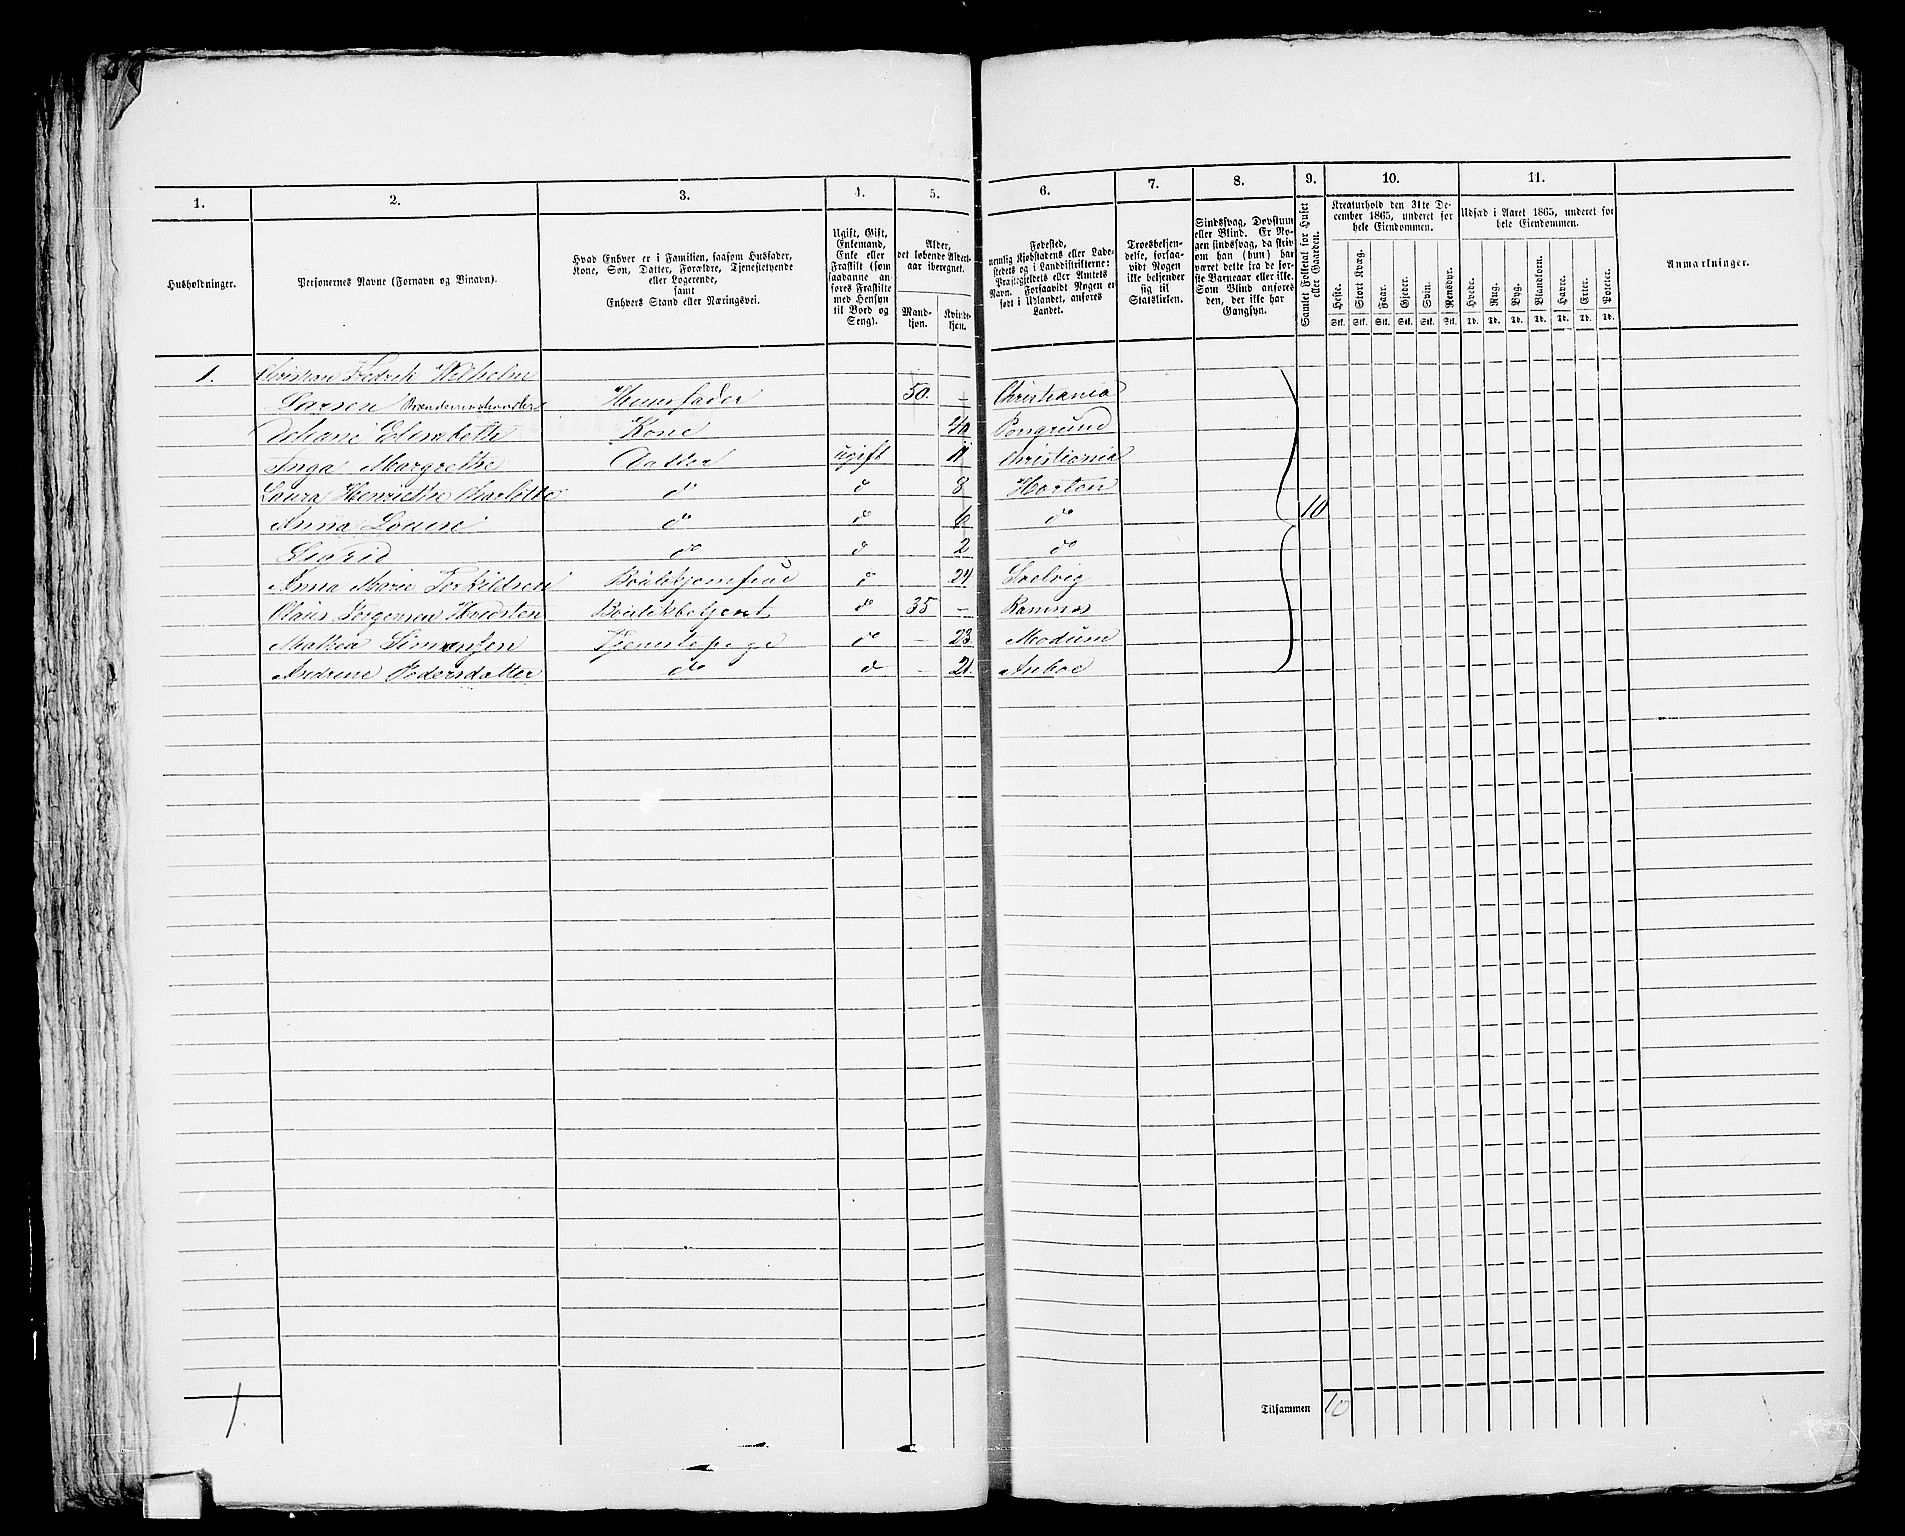 1. 2. 3. 4. 5. 6. 7. 8. 9. 10. 11.
Husholdninger.
Personernes Navne (Fornavn og Binavn).
Hvad Enhver er i Familien, saasom Husfader,
Kone, Søn, Datter, Forældre, Tjenestetyende
eller Logerende,
samt
Enhvers Stand eller Næringsvei.
Ugift, Gift,
Enkemand,
Enke eller
Fraskilt (som
saadanne an-
føres Fraskilte
med Hensyn
til Bord og
Seng).
Alder,
det løbende Alders-
aar iberegnet.
Mand-
kjøn.
Kvinde-
kjøn.
Fødested,
nemlig Kjøbstadens eller Lade-
stedets og i Landdistrikterne:
Præstegjeldets eller Amtets
Navn. Forsaavidt Nogen er
født i Udlandet, anføres
Landet.
Troesbekjen-
delse, forsaa-
vidt Nogen
ikke bekjender
sig til
Statskirken.
Sindssvag, Døvstum
eller Blind. Er No-
gen sindssvag, da skriv
om han (hun) har
været dette fra de før-
ste Barneaar eller ikke.
Som Blind anføres
den, der ikke har
Gangsyn.
Samlet Folketal for Huset
eller Gaarden.
Kreaturhold den 31te De-
cember 1865, underet for
hele Eiendommen.
Heste. Stort Kvæg. Faar. Gjeder. Svin. Rensdyr.
Stk. Stk. Stk. Stk. Stk. Stk.
Udsæd i Aaret 1865, underet for
hele Eiendommen.
Hvede. Rug. Byg. Blandkorn. Havre. Erter. Poteter.
Td. Td. Td. Td. Td. Td. Td.
Anmærkninger.
1. Christian Fredrik Wilhelm
Larsen Huusfader 50. - Christiania
Johane Elisabeth Kone 40 Porsgrund
Inga Margrethe Datter ugift 11 Christiania
Laura Henriethe Charlotte do do 8 Horten
Anna Louise do do 6 do 10
Sigrid do do 2 do
Anna Marie Torkildsen Boutikjomfrue do 24 Snelvig
Claus Jørgensen Hvidsten Boutiksbetjent do 35 - Ramnæs
Mathea Simensen Tjenestepige do - 23 Modum
Andrine Pedersdatter do do - 21.
1.
Tilsammen 10